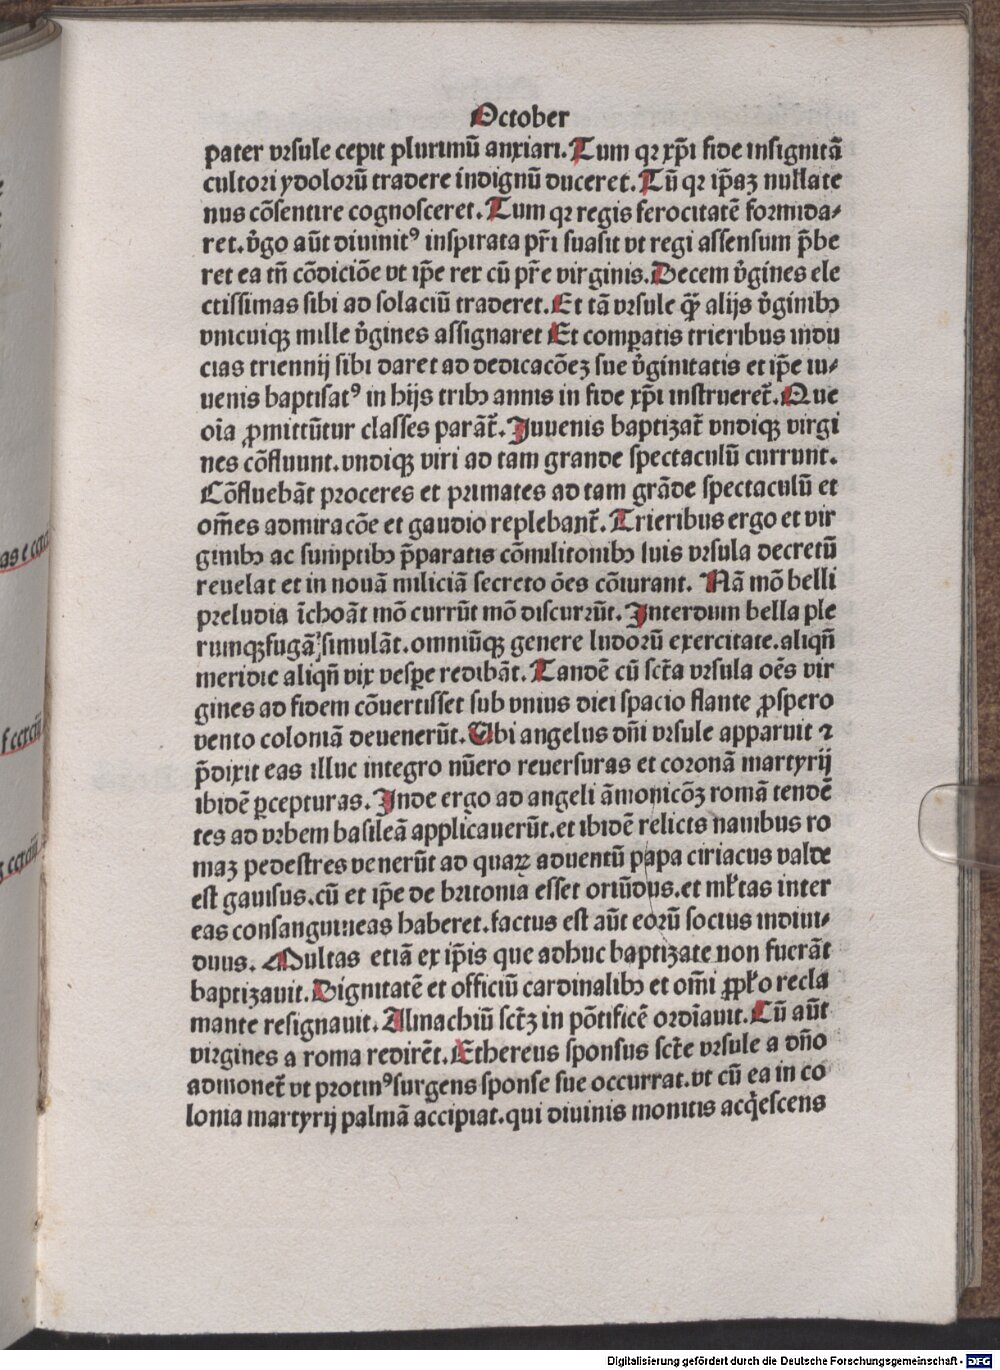 October
pater vrsule cepit plurimū anxiari. Tum qꝛ xp̄i fide insignitā
cultori ydolorū tradere indignū duceret. Tū qꝛ ip̄aʒ nullate
nus cōsentire cognosceret. Tum qꝛ regis ferocitatē formida⸗
ret. v̄go aūt diuinitꝰ inspirata pr̄i suasit vt regi assensum p̄be
ret ea tn̄ cōdiciōe vt ip̄e rex cū pr̄e virginis. Decem v̄gines ele
ctissimas sibi ad solaciū traderet. Et tā vrsule qꝫ̄ alijs v̄ginibꝫ
vnicuiqꝫ mille v̄gines assignaret Et comꝑatis trieribus indu
cias triennij sibi daret ad dedicacōeʒ sue v̄ginitatis et ip̄e iu⸗
uenis baptisatꝰ in hijs tribꝫ annis in fide xp̄i instrueret̄. Que
oīa ꝓmittūtur classes parāt̄. Juuenis baptizat̄ vndiqꝫ virgi
nes cōfluunt. vndiqꝫ viri ad tam grande spectaculū currunt.
Cōfluebāt proceres et primates ad tam grāde spectaculū et
om̄es admiracōe et gaudio replebant̄. Trieribus ergo et vir
ginibꝫ ac sumptibꝫ p̄paratis cōmilitonibꝫ suis vrsula decretū
reuelat et in nouā miliciā secreto ōes cōiurant. Nā mō belli
preludia īchoāt mō currūt mō discurrūt. Interdum bella ple
rumqꝫ fugā simulāt. omniūqꝫ genere ludorū exercitate. aliqn̄
meridie aliqn̄ vix vesꝑe redibāt. Tandē cū sct̄a vrsula oēs vir
gines ad fidem cōuertisset sub vnius diei spacio flante ꝓspero
vento coloniā deuenerūt. Vbi angelus dn̄i vrsule apparuit ⁊
p̄dixit eas illuc integro nūero reuersuras et coronā martyrij
ibidē ꝑcepturas. Inde ergo ad angeli āmonicōʒ romā tendē
tes ad vrbem basileā applicauerūt. et ibidē relictis nauibus ro
maʒ pedestres venerūt ad quaꝝ aduentū papa ciriacus valde
est gauisus. cū et ip̄e de britonia esset oriūdus. et ml̄tas inter
eas consanguineas haberet. factus est aūt eorū socius indiui⸗
duus. Multas etiā ex ip̄is que adhuc baptizate non fuerāt
baptizauit. Dignitatē et officiū cardinalibꝫ et om̄i ꝓpl̄o recla
mante resignauit. Almachiū sct̄ʒ in pōtificē ordīauit. Cū aūt
virgines a roma redirēt. Ethereus sponsus sct̄e vrsule a dn̄o
admonet̄ vt protinꝰ surgens sponse sue occurrat. vt cū ea in co
lonia martyrij palmā accipiat. qui diuinis monitis acq̄escens
Digitalisierung gefördert durch die Deutsche Forschungsgemeinschaft - DFG